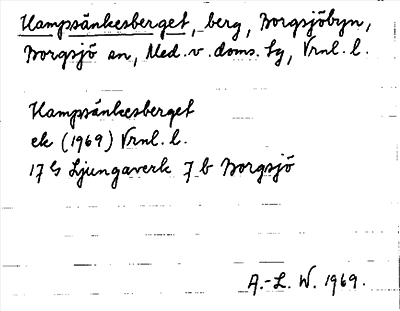 Hampsänkesberget, berg, Borgsjöbyn,
Borgsjö sn, Med. v. doms. tg, Vrnl. l.
Hampsänkesberget
ek (1969) Vrnl. l.
17 G Ljungaverk 7 b Borgsjö
A.-L. W. 1969.